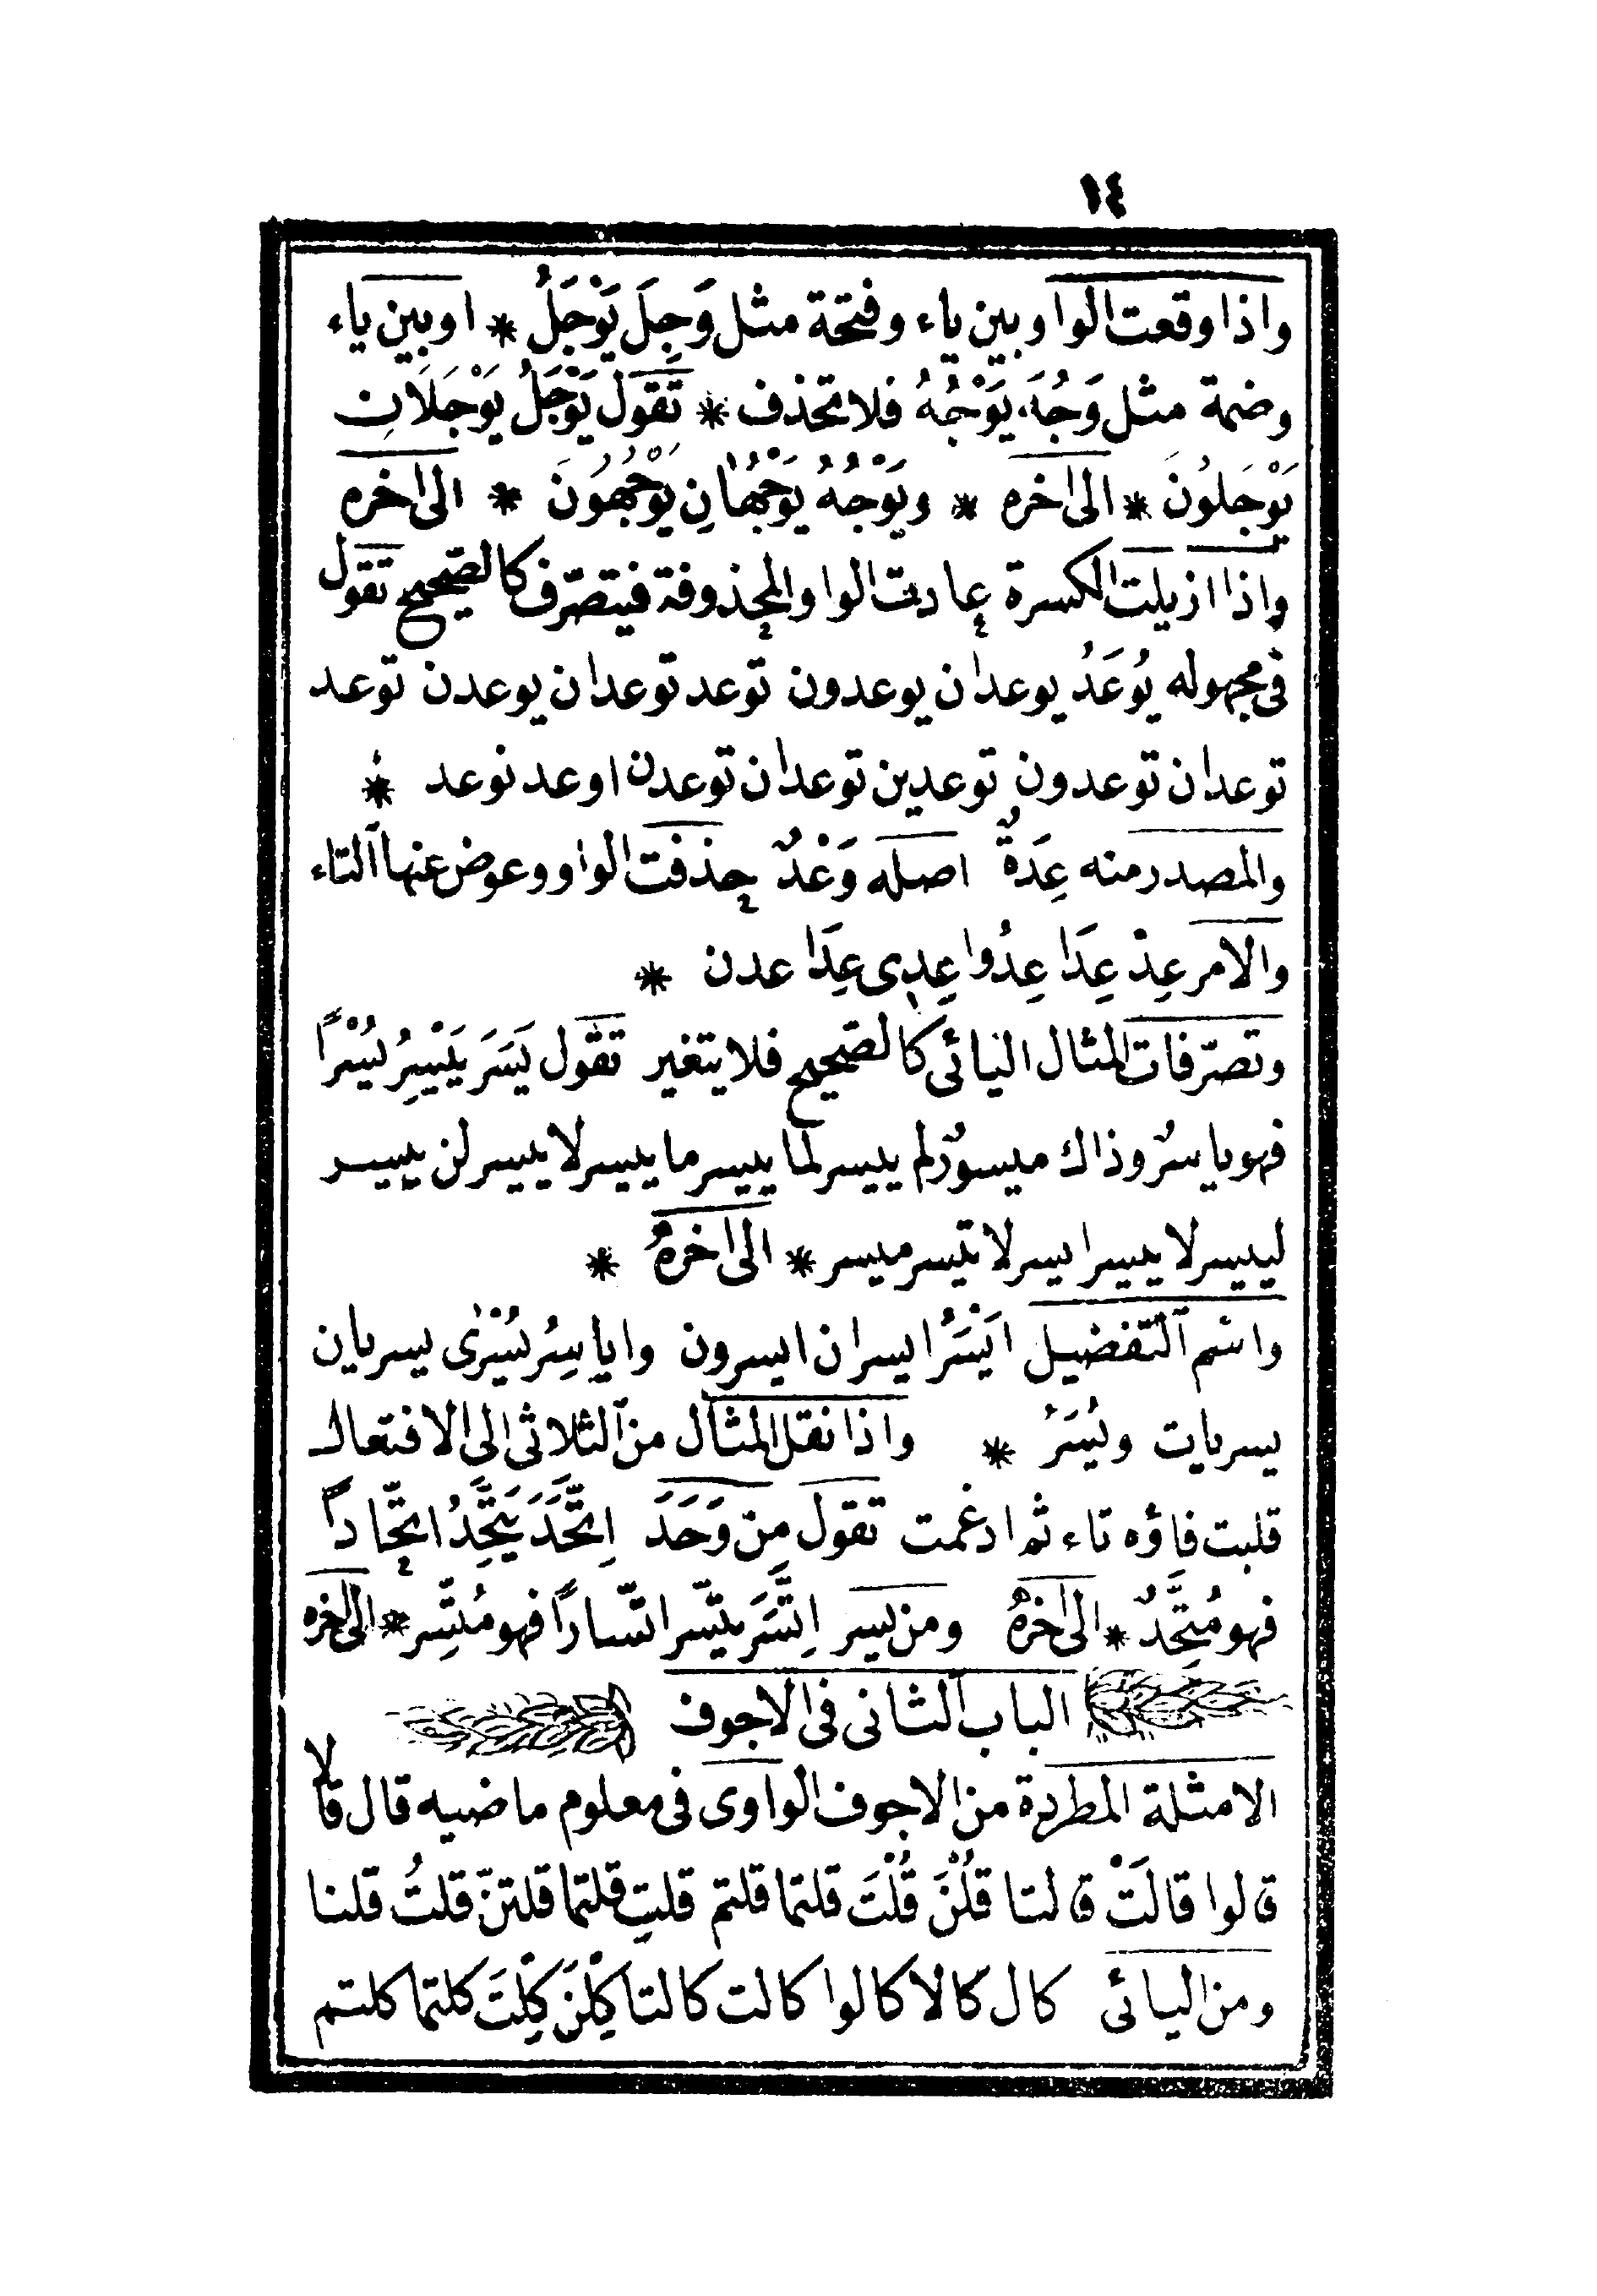 ١٤
واذا وقعت الواو بين ياء وفتحة مثل وَجِلَ يَوْجَلُ * او بين ياء
وضمة مثل وَجُهَ يَوْجُهُ فلا تحذف * تَقول يَوْجَلُ يَوْجَلَانِ
يَوْجَلُونَ * الى اخره * ويَوْجُهُ يَوْجُهَانِ يَوْجُهُونَ * الى اخره
واذا ازيلت الكسرة عادت الواو المحذوفة فيتصرّف كالصّحيح تقول
فى مجهوله يُوعَدُ يوعدان يوعدون توعد توعدان يوعدن توعد
توعدان توعدون توعدين توعدان توعدن اوعد نوعد *
والمصدر منه عِدَةٌ اصله وَعْدٌ حذفت الواو وعوض عنها التاء
والامر عِدْ عِدَا عِدُوا عِدِى عِدَا عدن *
وتصرّفات المثال اليائى كالصّحيح فلا يتغير تقول يَسَرَ يَيْسِرُ يُسْرًا
فهو ياسرٌ وذاك ميسورٌ لم ييسر لما ييسر ما ييسر لا ييسر لن ييسر
لييسر لا ييسر ايسر لا تيسر ميسر * الى اخرهُ *
واسم التّفضيل اَيْسَرُ ايسران ايسرون واياسِرُ يُسْرٰى يسريان
يسريات ويُسَرُ * واذا نقل المثال من الثلاثى الى الافتعال
قلبت فاؤه تاء ثم ادغمت تقول من وَحَدَ اِتَّحَدَ يَتَّحِدُ اتّحادًا
فهو مُتَّحِدٌ * الى اخرهُ ومن يسر اِتَّسَرَ يتّسر اتّسارًا فهو مُتّسِر * الى اخره
الباب الثانى فى الاجوف
الامثلة المطردة من الاجوف الواوى فى معلوم ماضيه قال قالا
قالوا قالَتْ قالتا قُلْنَ قُلْتَ قلتما قلتم قلتِ قلتما قلتنّ قلتُ قلنا
ومن اليائى كال كالا كالوا كالت كالتا كِلْنَ كِلْتَ كلتما كلتم